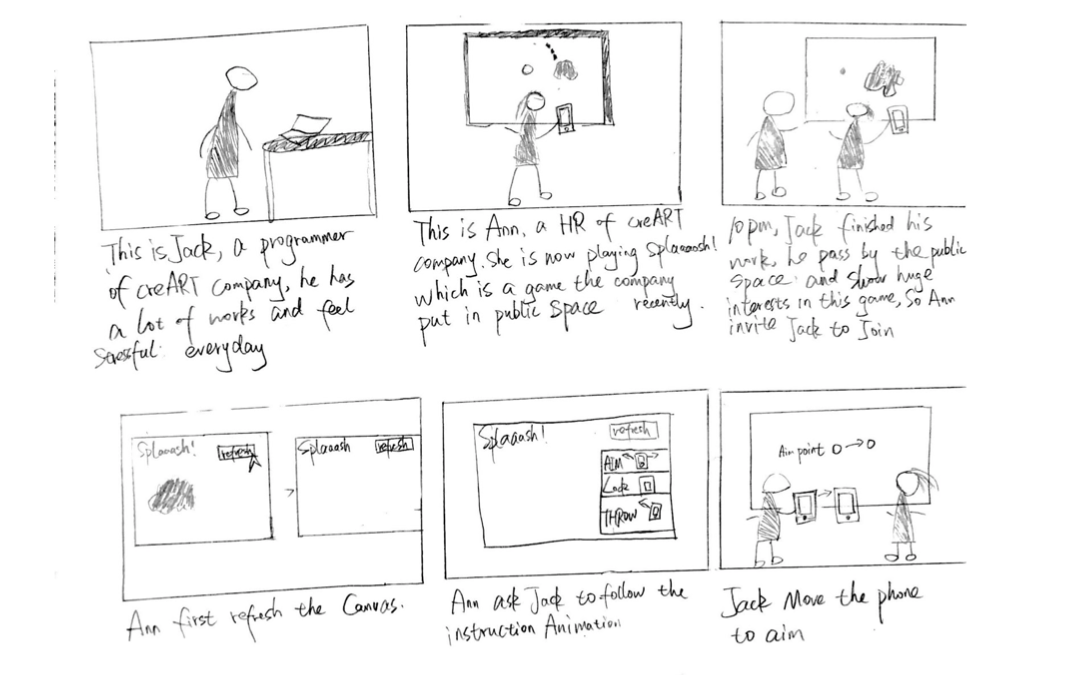 This is Jack, a programmer
of creART company, he has
a lot of works and feel
stressful everyday
This is Ann, a HR of creART
company. She is now playing Splaaaash!
which is a game the company
put in public space recently.
10pm, Jack finished his
work, he pass by the public
space and show huge
interests in this game, So Ann
invite Jack to Join
Splaaash!
refresh
Splaaash
refresh
Ann first refresh the Canvas.
Splaaash!
refresh
AIM
Lock
THROW
Ann ask Jack to follow the
instruction Animation
Aim point
Jack Move the phone
to aim